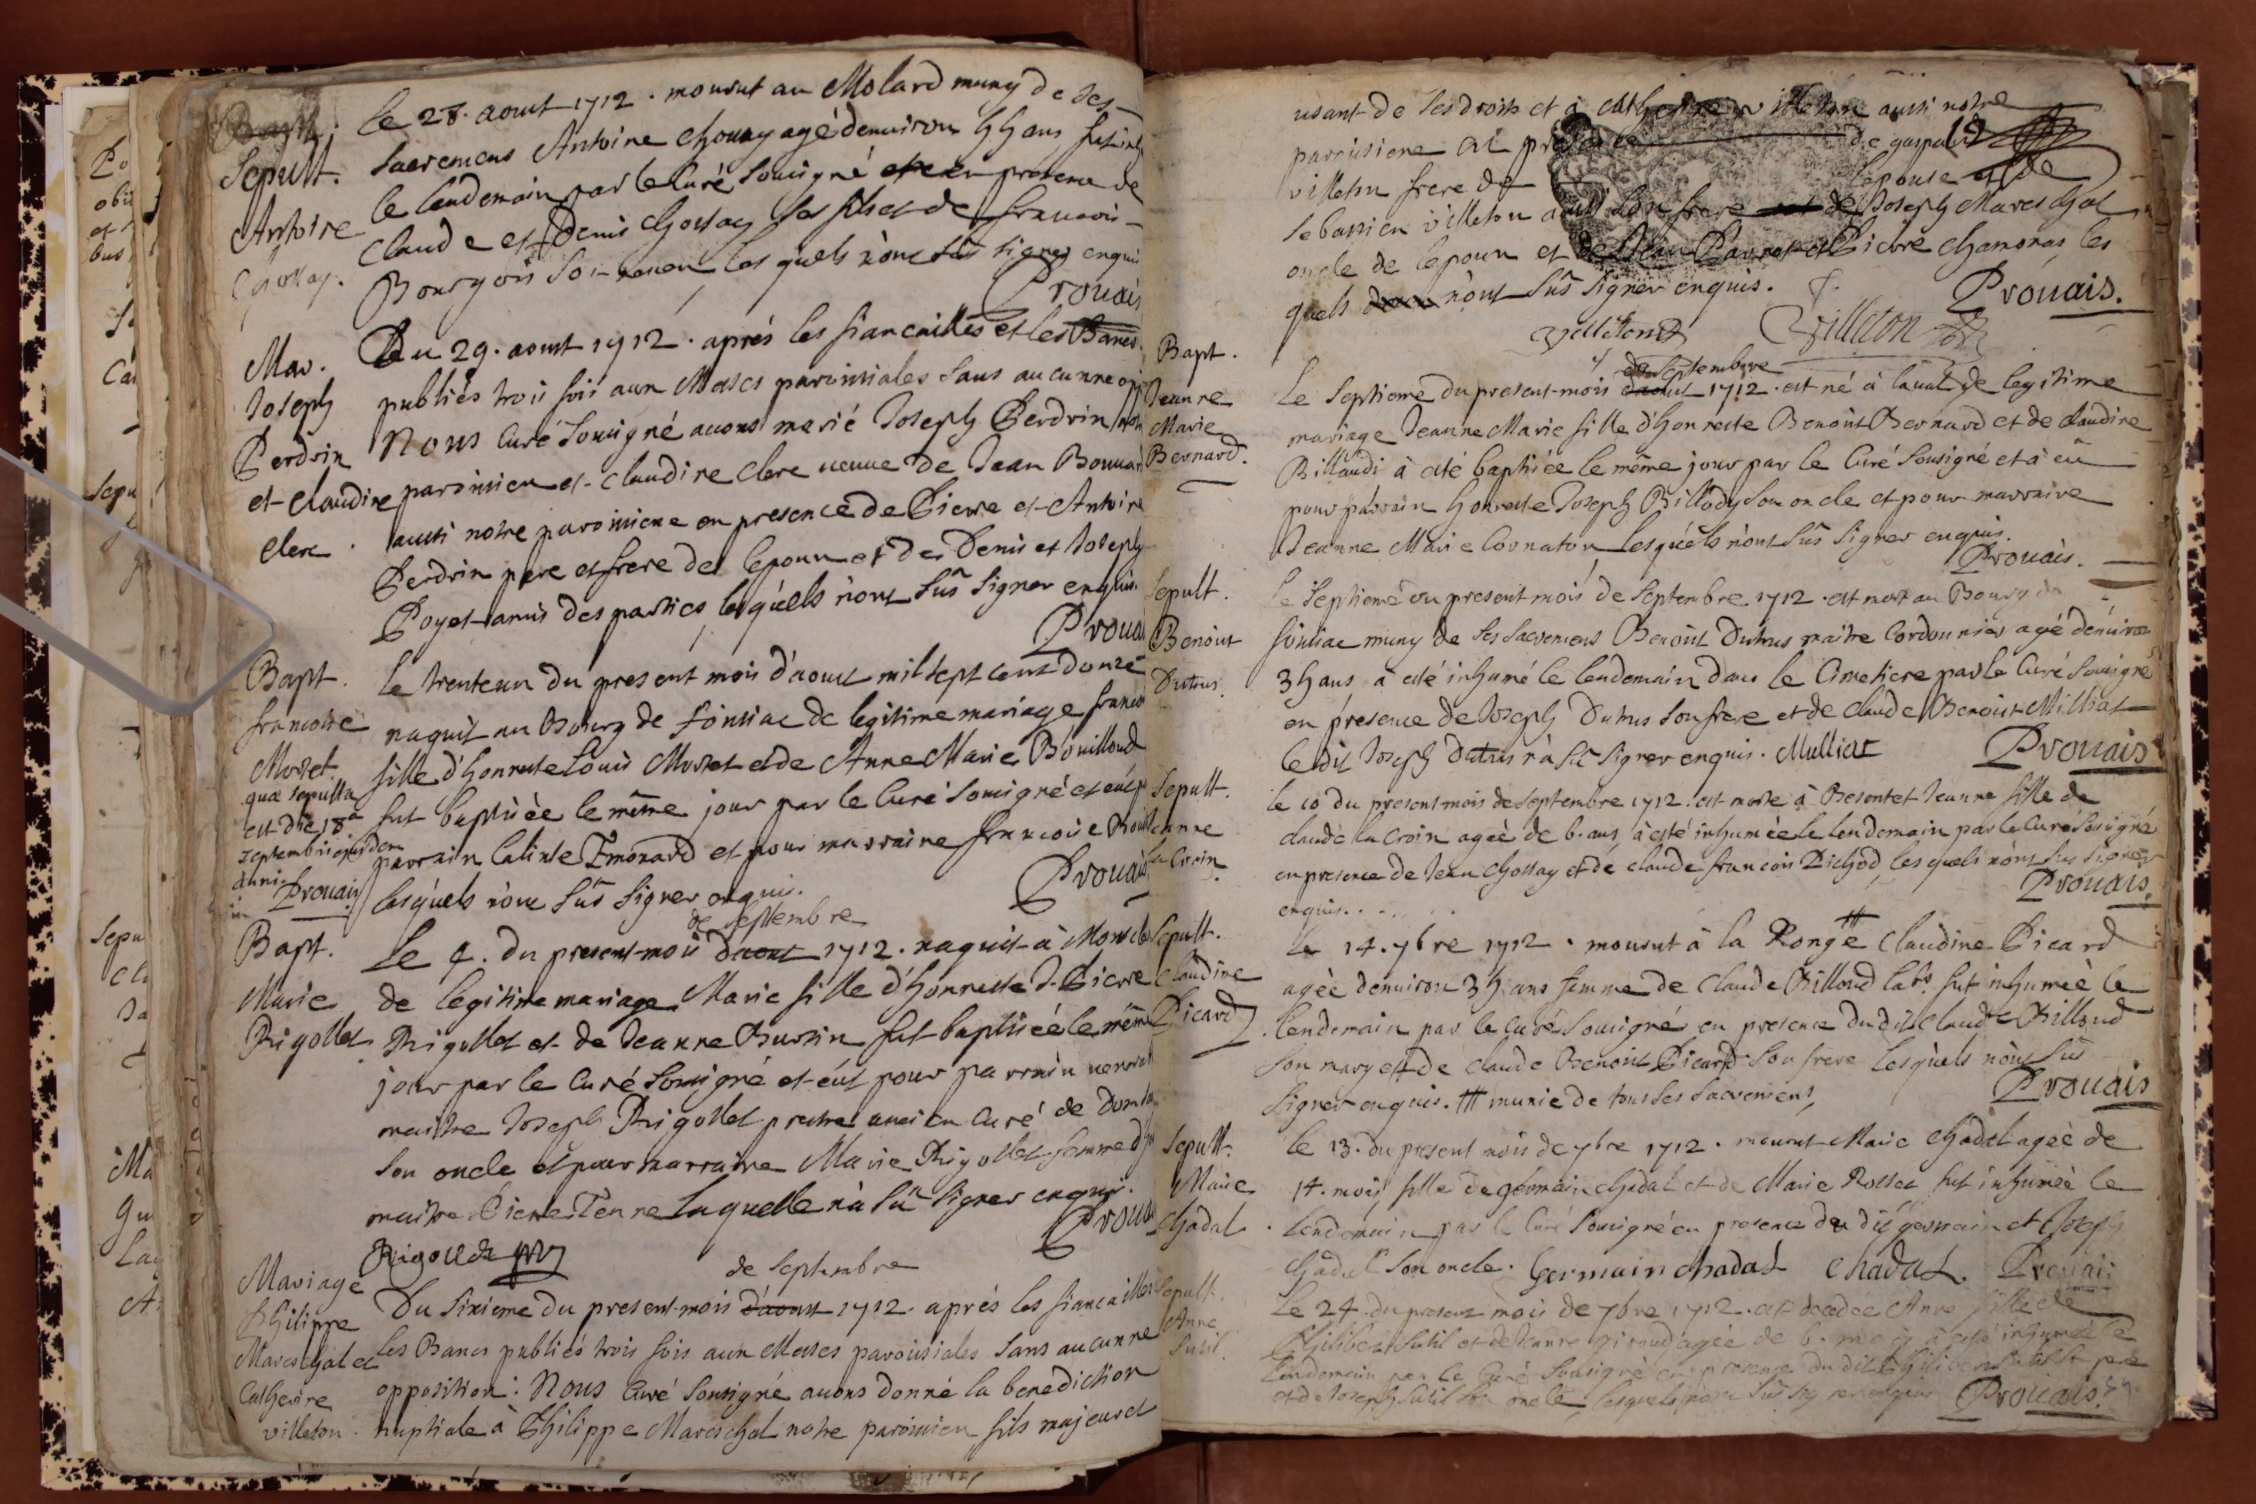 Sepult.
Antoine
Chossay.
le 28. aoust 1712. mourut au Molard muny de ses
sacremens Antoine Chossay agé denuiron 55 ans, fut inh
le lendemain par le Curé sousigné et en présence de
Claude et Denis Chossay ses fils et de francois
Bourgois son neveu, les quels n'ont sûs signer enquis
Prouais
Mar.
Joseph
Perdrin
et Claudine
Clerc.
Du 29. aoust 1712. aprés les fiancailles et les Bancs
publiés trois fois aux Messes paroissiales sans aucunne opp
Nous Curé sousigné auons marié Joseph Perdrin notre
paroissien et Claudine Clerc veuue de Jean Bouuard
aussi notre paroissiene en presence de Pierre et Antoine
Perdrin pere et frere de lepoux et de Denis et Joseph
Poyet amis des parties, lesquels n'ont sûs signer enquis.
Prouai
Bapt.
francoise
Moret.
quæ sepulta
est die 18a
septembris ejusdem
anni
Prouais
le trenteun du present mois d'aoust mil sept cent douze
naquit au Bourg de foissiac de legitime mariage franco
fille d'honneste Louis Moret et de Anne Marie Bouilloud
fut baptisée le même jour par le Curé sousigné et eut p
parrain Emonard et pour marraine francoise Boui
lesquels n'ont sûs signer enquis.
Prouais
Bapt.
Marie
Rigollet
de septembre
Le 4. du present mois d'aoust 1712. naquit à
de legitime mariage Marie fille d'honneste Sr. Pierre
Rigollet et de Jeanne Bussin fut baptisée le même
jour par le Curé sousigné et eut pour parrain
maitre Joseph Rigollet pretre ancien Curé de
son oncle et pour marraine Marie Rigollet femme d
maitre Pierre Tenne laquelle n'a sû signer enquis.
Prouai
Rigollet
Mariage
Philippe
Mareschal et
Catherine
villeton.
de septembre
Du sixieme du present mois d'aoust 1712. aprés les fiancailles
les Bancs publiés trois fois aux Messes paroissiales sans aucunne
opposition: Nous Curé sousigné auons donné la benediction
nuptiale à Philippe Mareschal notre paroissien fils majeur et
usant de ses droits et à Catherine villeton aussi notre
paroissiene en presence de gaspard
villeton frere de lepouse et de
sebastien villeton aussi son frere de Joseph Mareschal
oncle de lepoux et de Jean et Pierre Chamonas, les
quels n'ont sûs signer enquis.
Prouais.
villeton
Villeton
Bapt.
Jeanne
Marie
Bernard.
de septembre
Le septieme du present mois d'aoust 1712. est né à laual de legitime
mariage Jeanne Marie fille d'honneste Benoist Bernard et de Claudine
Billaudi à été baptisée le même jour par le Curé sousigné et à eû
pour parrain honneste Joseph Billody son oncle et pour marraine
Jeanne Marie Cornaton, lesquels n'ont sûs signer enquis.
Prouais.
Sepult.
Benoist
Dutrus.
le septieme du present mois de septembre 1712. est mort au Bourg de
foissiac muny de ses sacremens Benoist Dutrus maitre Cordonnier agé denuiron
35 ans à été inhumé le lendemain dans le Cimetiere par le Curé sousigné
en présence de Joseph Dutrus son frere et de Claude Benoist Milliat
le dit Joseph Dutrus n'a sû signer enquis. Milliat
Prouais
Sepult.
Jeanne
la Croix
le 10 du present mois de septembre 1712. est morte à Besontet Jeanne fille de
Claude la Croix agée de 6. ans, à esté inhumée le lendemain par le Curé sousigné
en presence de Jean Chossay et de Claude francois Pichod, les quels n'ont sûs signer
enquis.
Prouais.
Sepult.
Claudine
Picard
Le 14. 7bre 1712. mourut à la Ronge Claudine Picard
agée denuiron 35 ans femme de Claude Billoud labr. fut inhumée le
lendemain par le Curé sousigné en presence du dit Claude Billoud
son mary et de Claude Benoist Picard son frere lesquels n'ont sûs
signer enquis. # munie de tous ses sacremens,
Prouais
Sepult.
Marie
Chadal.
le 13. du present mois de 7bre 1712. mourut Marie Chadal agée de
14. mois, fille de germain Chadal et de Marie Rosset fut inhumée le
lendemain par le Curé sousigné en presence du dit germain et Joseph
Chadal son oncle. Germain chadal chadal. Prouais
Sepult.
Anne
Sutil
Le 24. du present mois de 7bre 1712. est decedee Anne fille de
Philibert Sutil et de Jeanne agée de 6. mois à esté inhumée le
lendemain par le Curé sousigné en presence du dit Philibert Sutil pere
et de Joseph Sutil son oncle, lesquels n'ont sûs signer enquis Prouais.